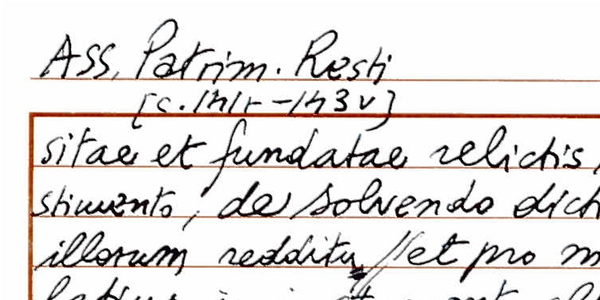 Ass. Patrim. Resti
[c. 141r - 143v]
sitae et fundatae relictis,
stimento, de solvendo dict
illorum redditu // et pro m